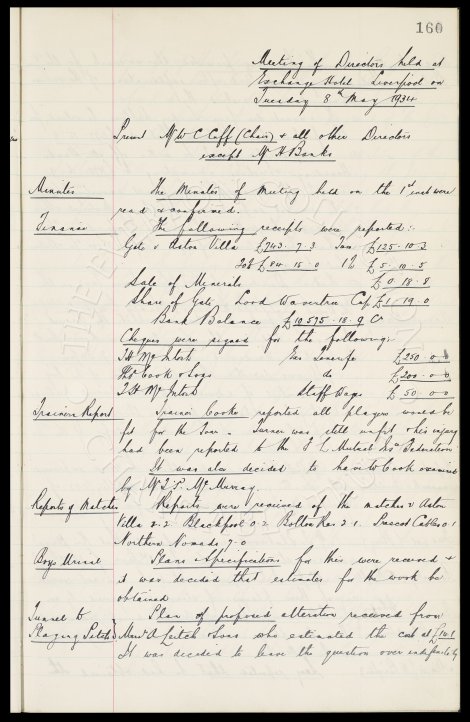 160
Meeting of Directors held at
Exchange Hotel Liverpool on
Tuesday 8th May 1934
Present Mr W C Cuff (Chair) & all other Directors
except Mr H Banks
Minutes The Minutes of meeting held on the 1st inst were
read & confirmed.
Finance The following receipts were reported:-
Gate v Aston Villa £743.7.3 Tax £135.10.3
20% £84.15.0 1% £5.10.5
Sale of Minerals £0.18.8
Share of Gate, Lord Wavertree Cup £1.19.0
Bank Balance £10,575.18.9 Cr
Cheques were signed for the following:
T H McIntosh Tenerife £250.0.0
Thos Cook & Sons do £200.0.0
T H McIntosh Staff Wages £50.0.0
Trainers Report Trainer Cooke reported all players would be
fit for the Tour. Turner was still unfit & his injury
had been reported to the F L Mutual Ins Federation
It was also decided to have Cook examined
by Mr McMurray.
Reports of Matches Reports were received of the matches v Aston
Villa 2-2. Blackpool 0-2. Bolton Res 2-1. Prescot Cables 0-1
Northern Nomads 7-0
Boys Urinal Plans & Specifications for this were received &
it was decided that estimates for the work be
obtained
Tunnel to Plan of proposed alteration received from
Playing Pitch Messrs A Leitch & Sons who estimated the cost at
It was decided to leave the question over indefinitely